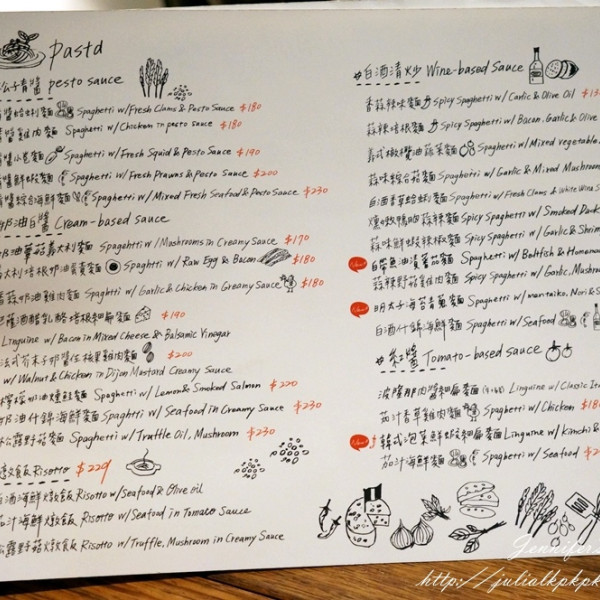 Pasta
松子青醬 pesto sauce
Spaghetti w/Fresh Clams & Pesto Sauce $180
Spaghetti w/ Chicken in pesto sauce $180
Spaghetti w/Fresh Squid & Pesto Sauce $190
Spaghetti w/Fresh Prawns & Pesto Sauce $200
Spaghetti w/Mixed Fresh Seafood & Pesto Sauce $230
奶油白醬 Cream-based sauce
奶油蘑菇義大利麵 Spaghetti w/Mushrooms in Creamy Sauce $170
Spaghetti w/ Raw Egg & Bacon $180
蒜奶油雞肉麵 Spaghetti w/ Garlic & Chicken in Creamy Sauce $180
$190
Linguine w/Bacon in Mixed Cheese & Balsamic Vinegar
法式芥末子奶醬 雞肉麵 $200
w/Walnut & Chicken in Dijon Mustard Creamy Sauce
檸檬奶油燻鮭麵 Spaghetti w/Lemon & Smoked Salmon $220
奶油什錦海鮮麵 Spaghtti w/Seafood in Creamy Sauce $230
松露野菇麵 Spaghetti w/Truffle Oil, Mushroom $230
燉飯Risotto $229
白酒海鮮燉飯 Risotto w/Seafood & Olive oil
茄汁海鮮燉飯 Risotto w/Seafood in Tomato Sauce
松露野菇燉飯 Risotto w/Truffle, Mushroom in Creamy Sauce
#白酒清炒 Wine-based Sauce
香蒜辣味麵 Spicy Spaghetti w/ Garlic & Olive Oil
蒜辣培根麵 Spicy Spaghetti w/Bacon, Garlic & Olive
義式橄欖油蔬菜麵 Spaghetti w/Mixed vegetable
蒜味綜合菇麵 Spaghetti w/Garlic & Mixed Mushroom
白酒 蛤蜊麵 Spaghetti w/Fresh Clams & White Wine
燻嫩鴨胸蒜辣麵 Spicy Spaghetti w/ Smoked Duck
蒜味鮮蝦辣椒麵 Spaghetti w/Garlic & Shrimp
New! 白帶魚油漬番茄麵 Spaghetti w/ Beltfish & Homemade
蒜辣野菇雞肉麵 Spicy Spaghetti w/Garlic, Mushroom
New! 明太子海苔青蔥麵 Spaghetti w/ mentaiko, Nori &
白酒什錦海鮮麵 Spaghetti w/Seafood
#紅醬 Tomato-based sauce
波隆那肉醬細扁麵 Linguine w/ Classic
茄汁青草雞肉麵 Spaghetti w/ Chicken $180
New! 韓式泡菜鮮蝦細扁麵 Linguine w/ Kimchi &
茄汁海鮮麵 Spaghetti w/ Seafood
Jennifer